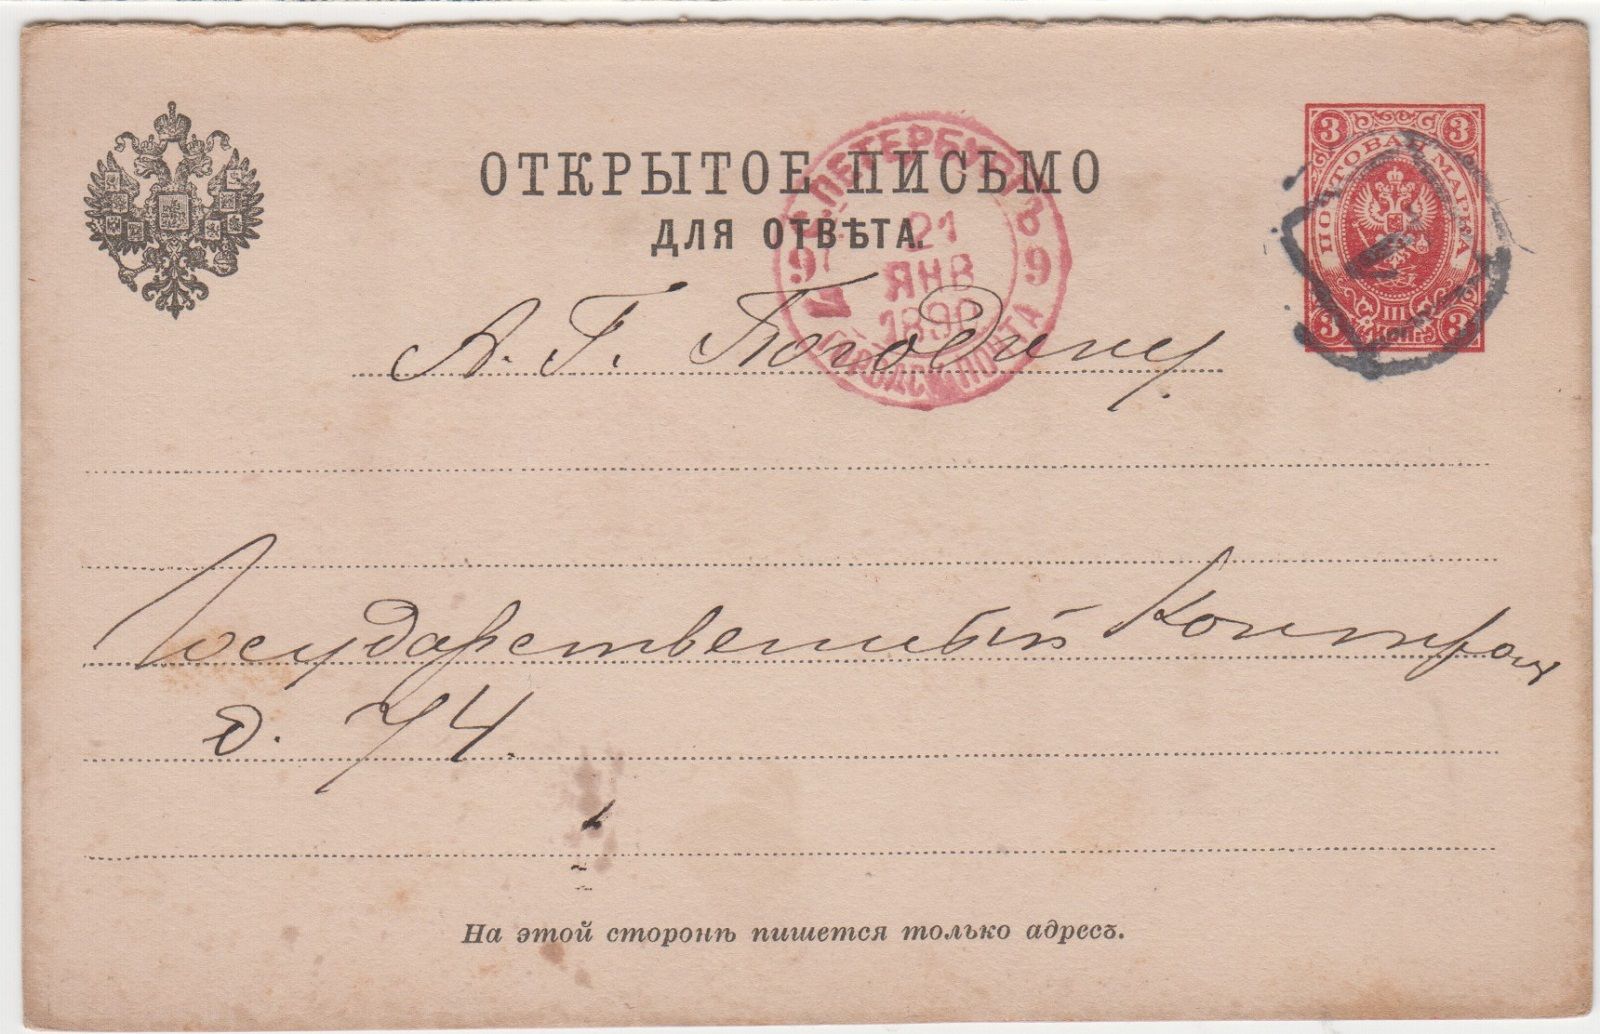 ОТКРЫТОЕ ПИСЬМО
ДЛЯ ОТВѢТА.
С.ПЕТЕРБУРГЪ
21
ЯНВ
1890
9 9
ГОРОДСК. ПОЧТА
3 3
ПОЧТОВАЯ МАРКА
III
КОП.
3 3
А. Г. Погодину.
Государственный Контроль
д. 74.
На этой сторонѣ пишется только адресъ.